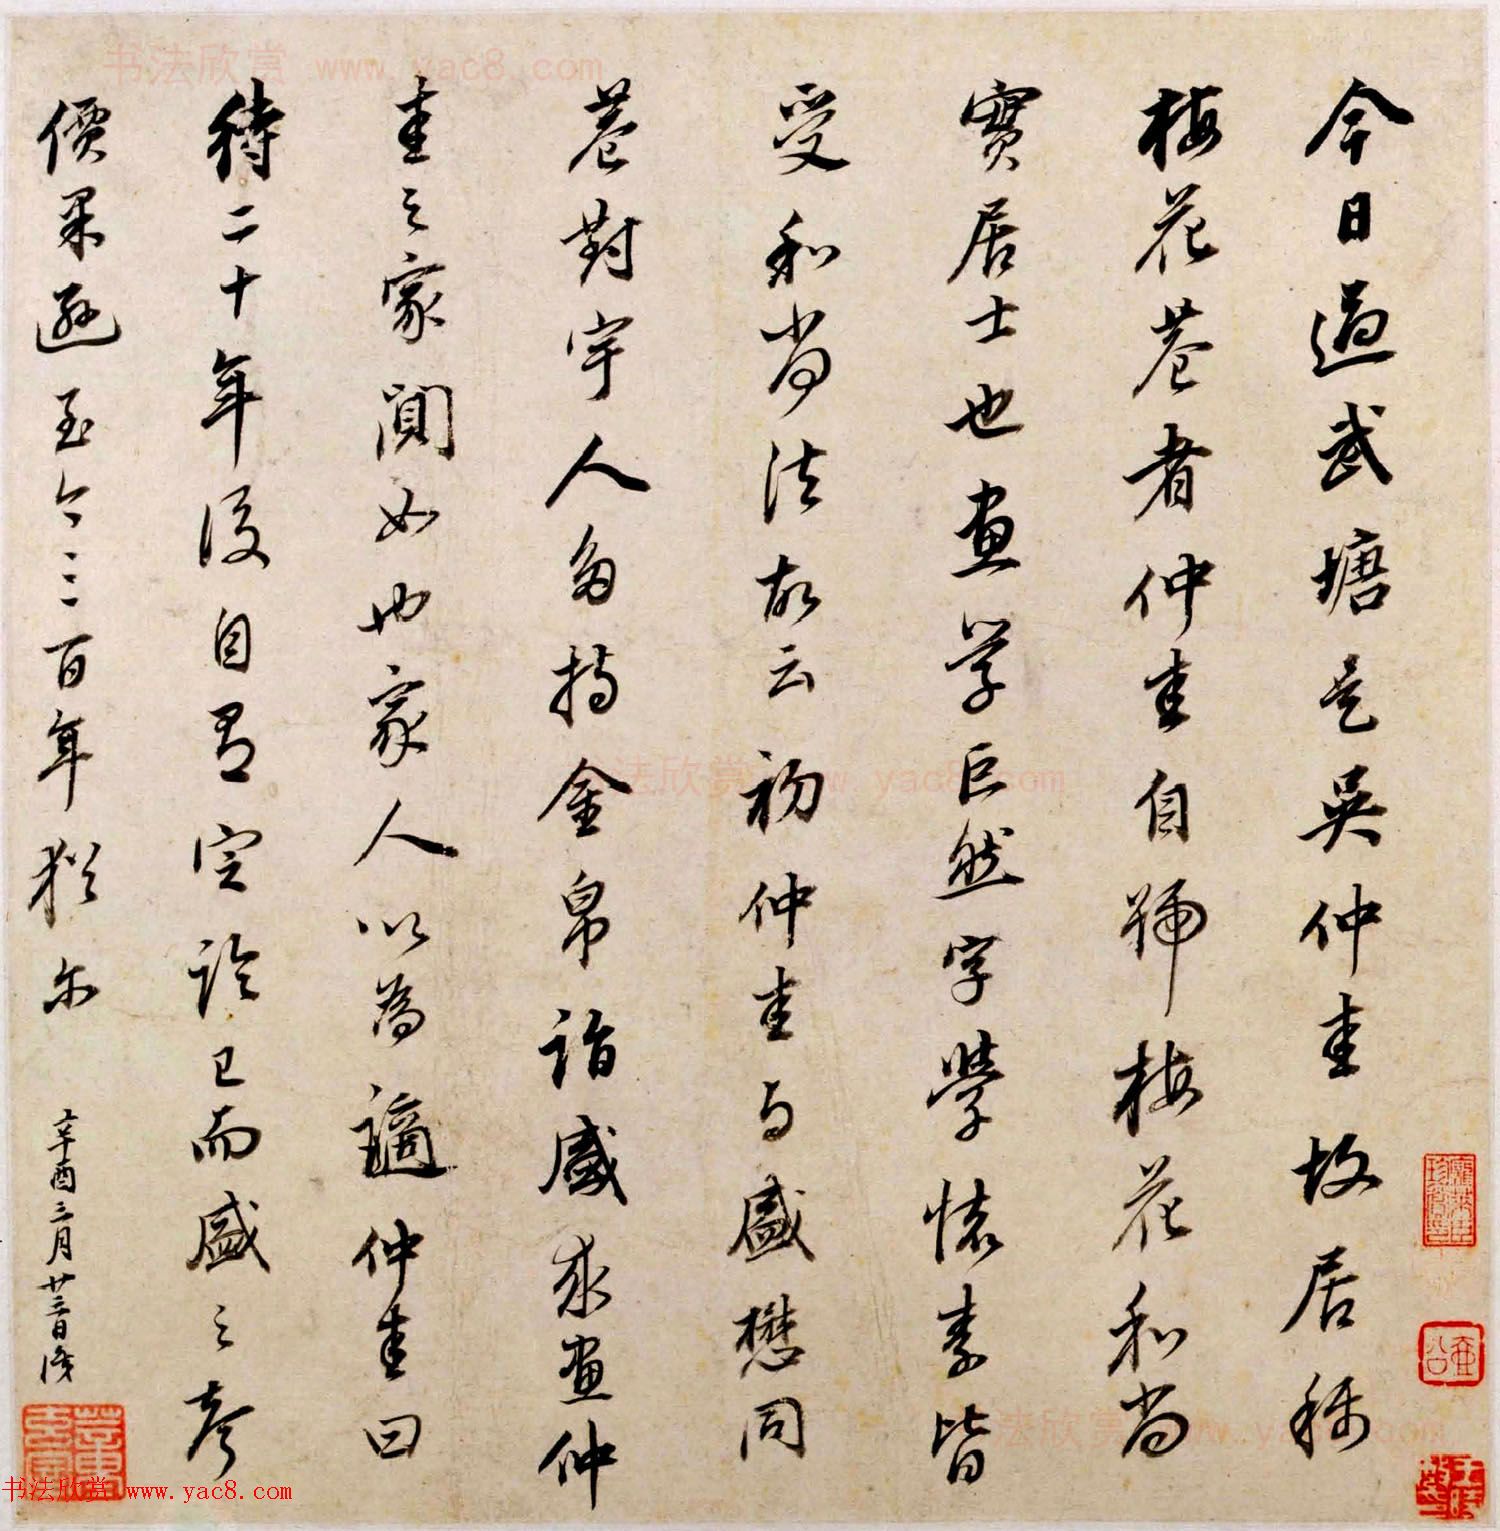 今日過武塘是吳仲圭故居稱
梅花菴者仲圭自號梅花和尚
實居士也畫學巨然字學懷素皆
受和尚法故云初仲圭与盛懋同
菴對宇人多持金帛詣盛求畫仲
圭之家闃如也家人以為謫仲圭曰
待二十年後自有定論已而盛之聲
價果遜至今三百年猶尔
辛酉三月廿三日識
书法欣赏 www.yac8.com
书法欣赏 www.yac8.com
书法欣赏 www.yac8.com
书法欣赏 www.yac8.com